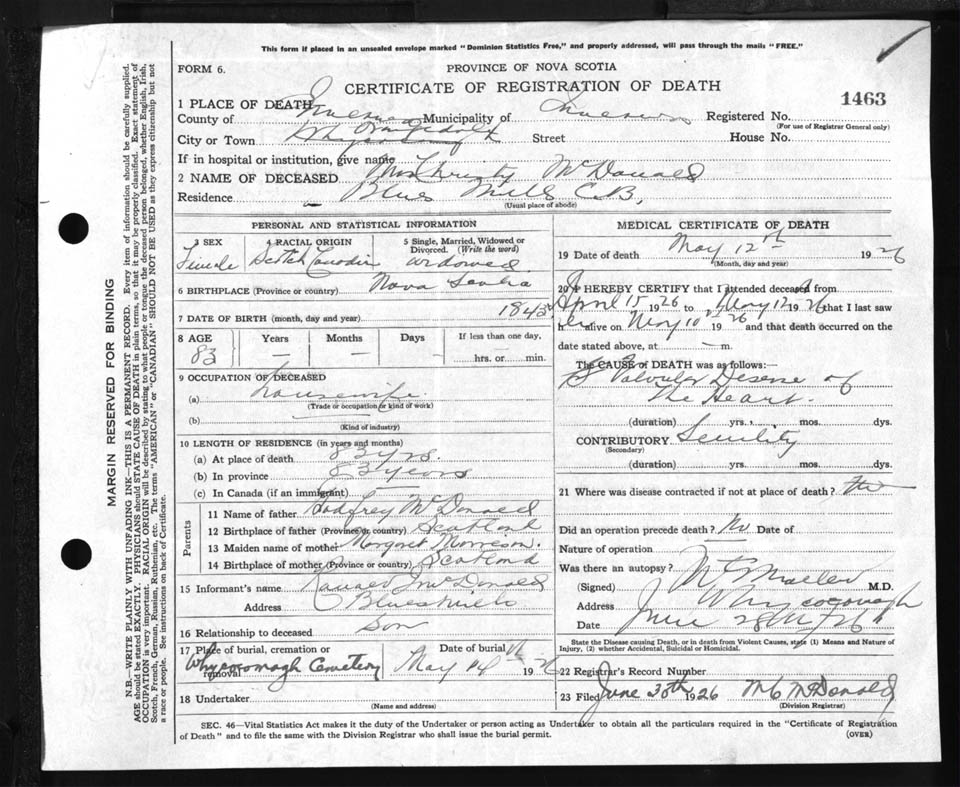 This form if placed in an unsealed envelope marked "Dominion Statistics Free," and properly addressed, will pass through the mails "FREE."
FORM 6.
PROVINCE OF NOVA SCOTIA
CERTIFICATE OF REGISTRATION OF DEATH
1463
1 PLACE OF DEATH
County of Inverness Municipality of Inverness Registered No.
(For use of Registrar General only)
City or Town Street House No.
If in hospital or institution, give name
2 NAME OF DECEASED Mrs Christy McDonald
Residence Blues Mills C.B.
(Usual place of abode)
PERSONAL AND STATISTICAL INFORMATION
3 SEX 4 RACIAL ORIGIN 5 Single, Married, Widowed or Divorced. (Write the word)
Female Scotch Canadian widowed
6 BIRTHPLACE (Province or country) Nova Scotia
7 DATE OF BIRTH (month, day and year) 1843
8 AGE Years Months Days If less than one day,
83 — — — hrs. or min.
9 OCCUPATION OF DECEASED
(a) housewife
(Trade or occupation or kind of work)
(b)
(Kind of industry)
10 LENGTH OF RESIDENCE (in years and months)
(a) At place of death 83 yrs.
(b) In province 83 years
(c) In Canada (if an immigrant)
Parents
11 Name of father Godfrey McDonald
12 Birthplace of father (Province or country) Scotland
13 Maiden name of mother Margret Morrison.
14 Birthplace of mother (Province or country) Scotland
15 Informant's name Ranald J McDonald
Address Blues Mills
16 Relationship to deceased Son
17 Place of burial, cremation or removal Date of burial
Whycocomagh Cemetery May 14th 1926
18 Undertaker
(Name and address)
MEDICAL CERTIFICATE OF DEATH
19 Date of death May 12th 1926
(Month, day and year)
20 I HEREBY CERTIFY that I attended deceased from
April 15 1926 to May 12 1926 that I last saw
her alive on May 10 1926 and that death occurred on
date stated above, at — m.
The CAUSE OF DEATH was as follows:—
Valvular Disease of
The Heart.
(duration) yrs. mos. dys.
CONTRIBUTORY Senility
(Secondary)
(duration) yrs. mos. dys.
21 Where was disease contracted if not at place of death?
Did an operation precede death? No. Date of
Nature of operation
Was there an autopsy?
(Signed) M.D.
Address Whycocomagh
Date June 28th 1926
State the Disease causing Death, or in death from Violent Causes, state (1) Means and Nature of Injury, (2) whether Accidental, Suicidal or Homicidal.
22 Registrar's Record Number
23 Filed June 28th 1926 M C McDonald
(Division Registrar)
SEC. 46—Vital Statistics Act makes it the duty of the Undertaker or person acting as Undertaker to obtain all the particulars required in the "Certificate of Registration
of Death" and to file the same with the Division Registrar who shall issue the burial permit.
(OVER)
MARGIN RESERVED FOR BINDING
N.B.—WRITE PLAINLY WITH UNFADING INK—THIS IS A PERMANENT RECORD. Every item of information should be carefully supplied.
AGE should be stated EXACTLY. PHYSICIANS should STATE CAUSE OF DEATH in plain terms, so that it may be properly classified. Exact statement of
OCCUPATION is very important. RACIAL ORIGIN will be described by stating to what people or tongue the deceased person belonged, whether English, Irish,
Scotch, French, German, Russian, Ruthenian, etc. The terms "AMERICAN" or "CANADIAN" SHOULD NOT BE USED as they express citizenship but not
a race or people. See instructions on back of Certificate.